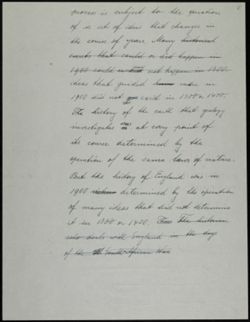 process is subject to the question
of a set of ideas that change in
the course of years. Many historical
events that could or did happen in
1900 could not happen in 1800.
ideas that guided men in
1900 did not exist in 1300 or 1400.
The history of the earth that geology
investigates is at every point of
its course determined by the
operation of the same laws of nature.
But the history of England was in
1900 determined by the operation
of many ideas that did not determine
it in 1300 or 1400. The historian
who deals with England in the days
of the South African War